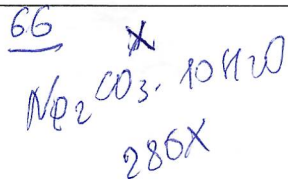 66
X
Na₂CO₃·10H₂O
286X